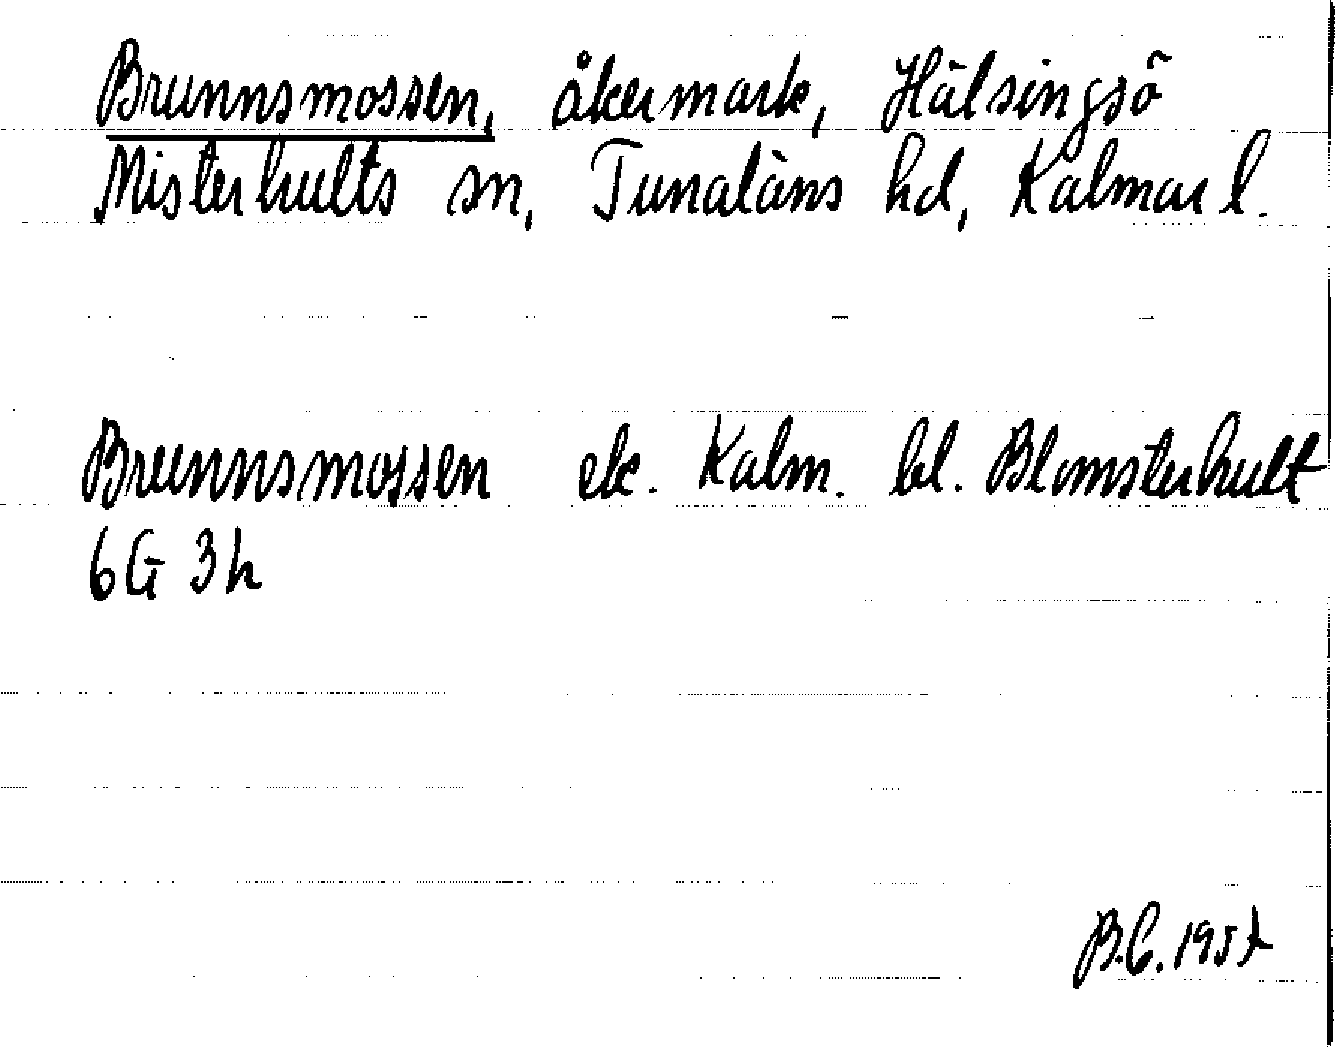 Brunnsmossen, åkermark, Hälsingsö
Misterhults sn, Tunaläns hd, Kalmar l.
Brunnsmossen ek. Kalm. bl. Blomsterhult
6G 3h
B.C.